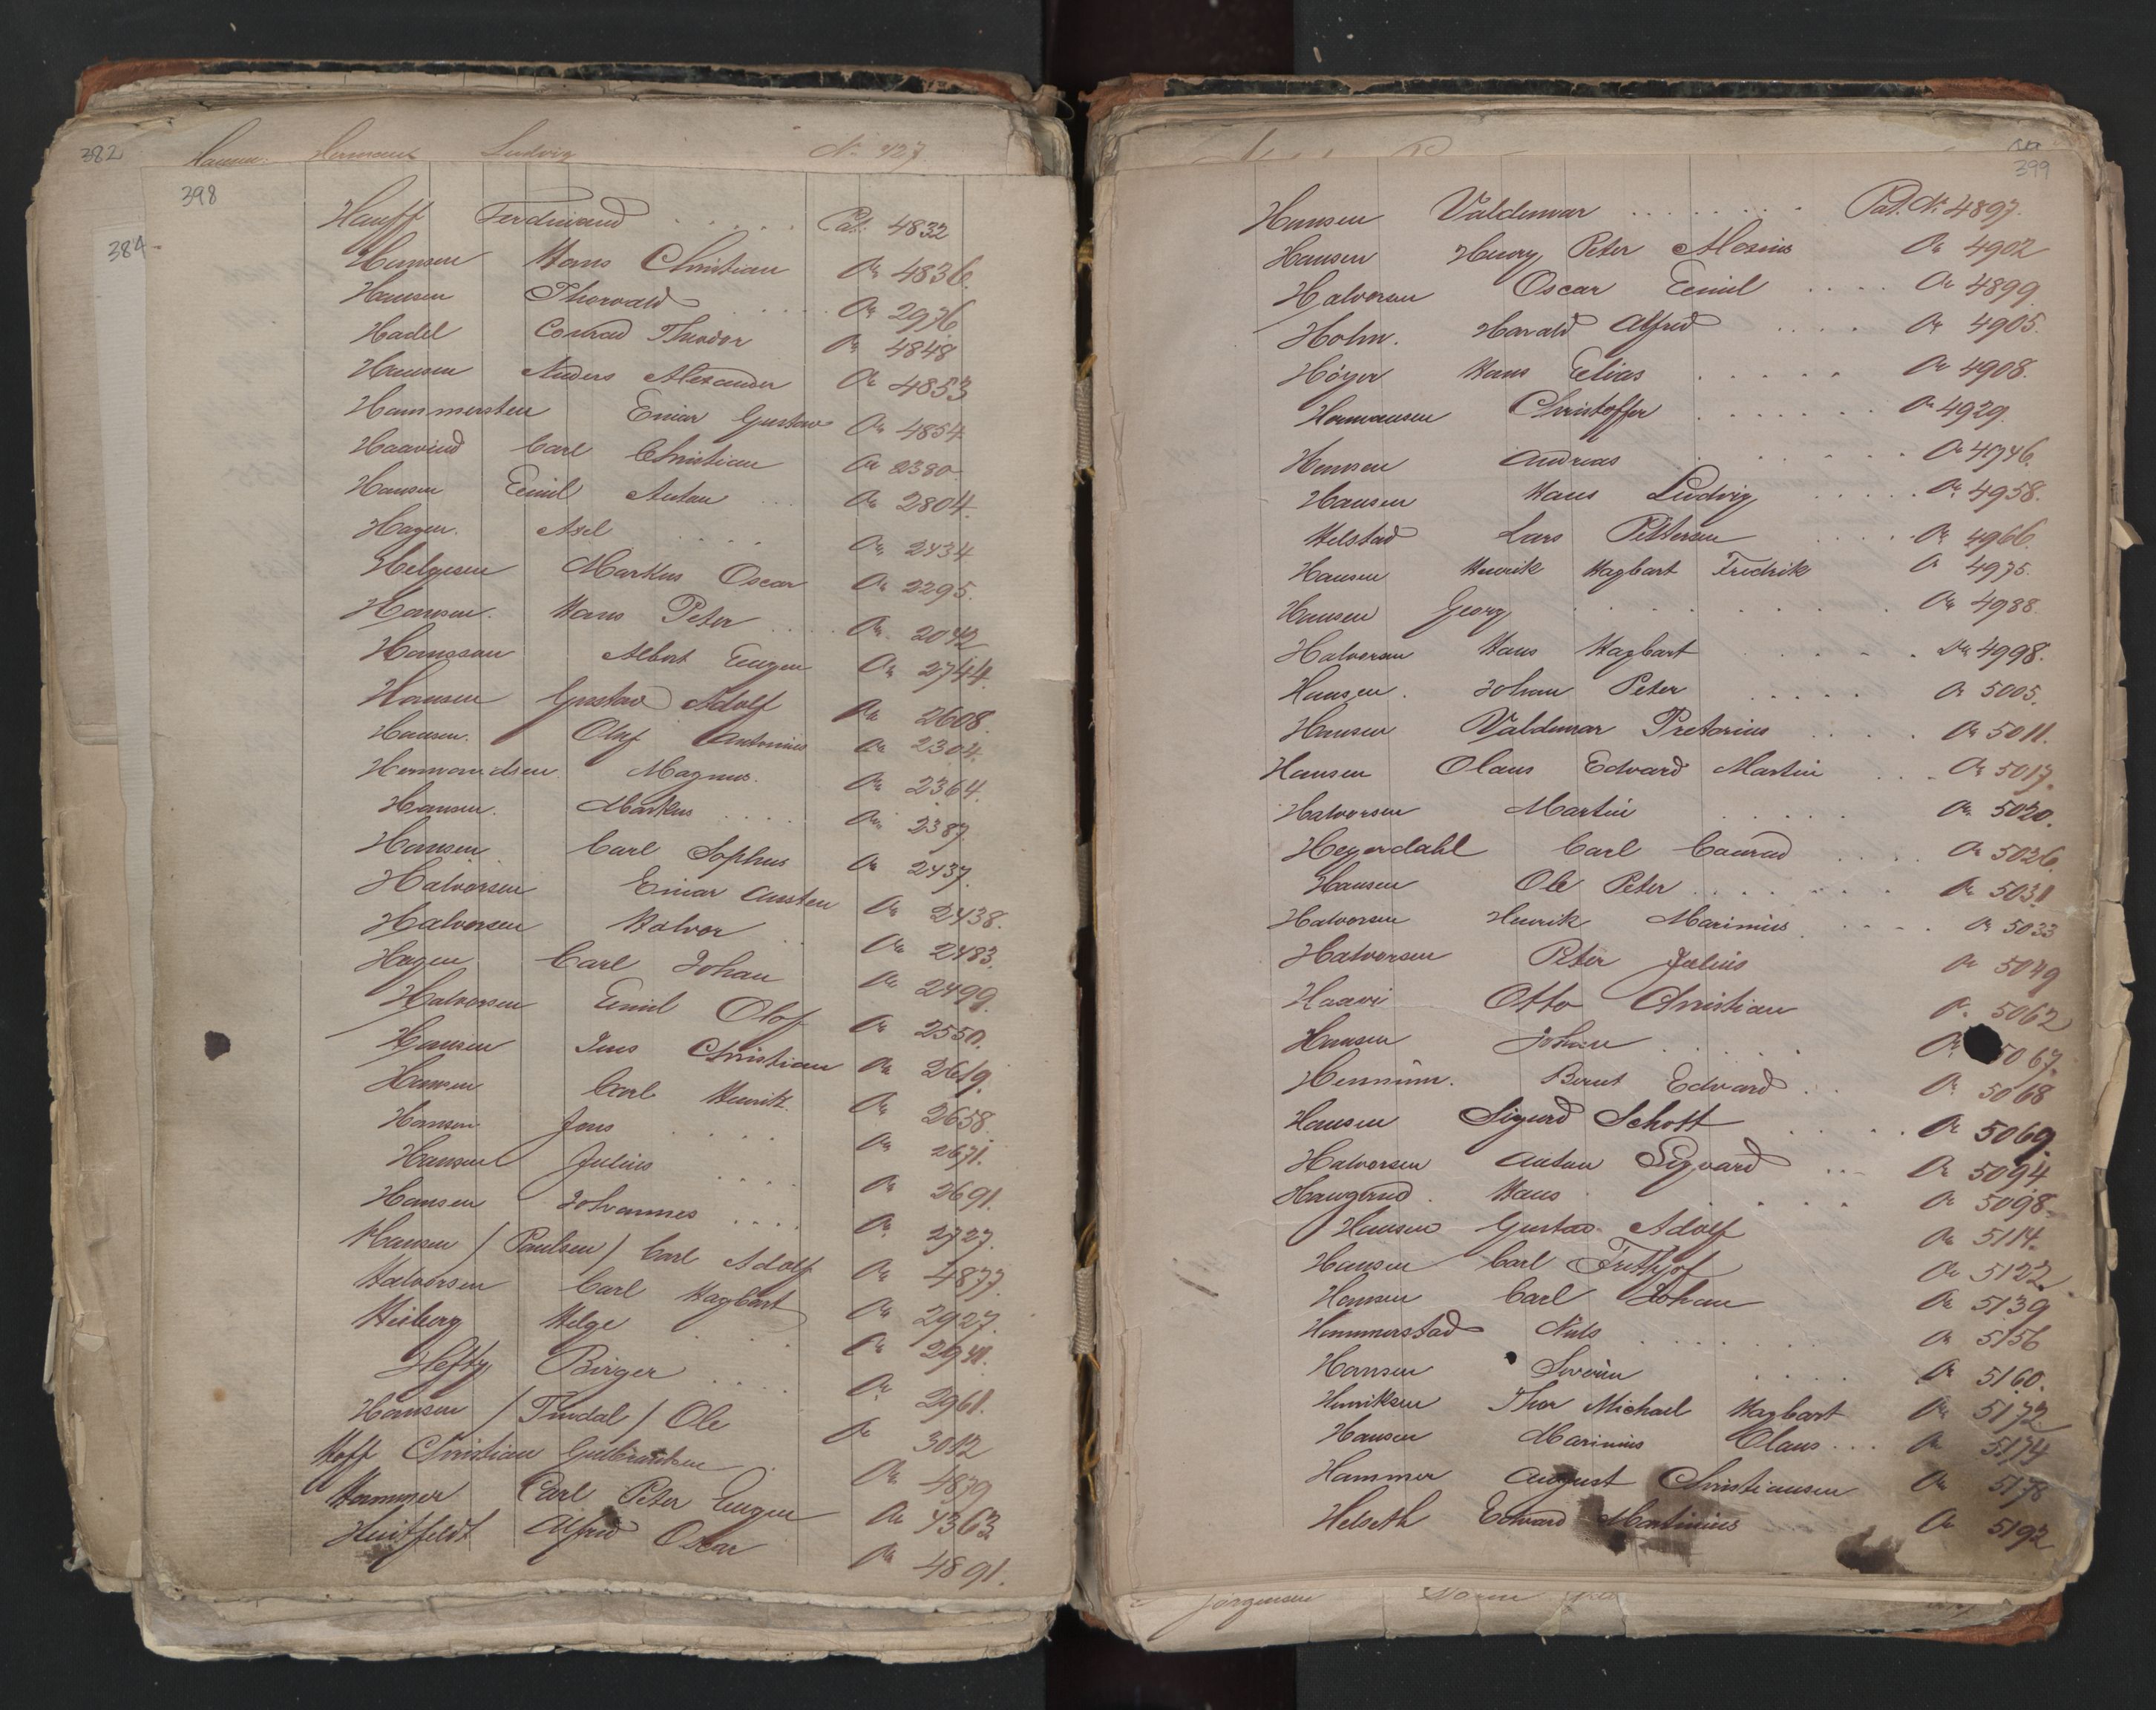 382
Hansen Hermann Ludvig No 427
398
384
Hauff Ferdinand ..... Pat. 4832
Hansen Hans Christian Do 4836.
Hansen Thorvald ..... Do 2976
Hadel Conrad Theodor Do 4848
Hansen Anders Alexander Do 4853
Hammersten Einar Gustav Do 4854
Haavind Carl Christian Do 2380
Hansen Emil Anton ... Do 2804.
Hagen. Axel .... Do 2434
Helgesen Markus Oscar Do 2295.
Hansen. Hans Peter .... Do 2042
Hanssen Albert Eugen Do 2744.
Hansen Gustav Adolf Do 2608.
Hansen. Olaf Antonius Do 2304.
Hermandsen Magnus. Do 2364.
Hansen. Markus .... Do 2387
Hansen Carl Sophus Do 2437.
Halvorsen Einar Austen Do 2438.
Halvorsen Halvor .. Do 2483.
Hagen Carl Johan Do 2499.
Halvorsen Emil Olaf Do 2550.
Hansen Jens Christian Do 2619.
Hansen Carl Henrik. Do 2658
Hansen Jens .... Do 2671.
Hansen Julius .... Do 2691.
Hansen Johannes .... Do 2727.
Hansen / Paulsen / Carl Adolf Do 4877.
Halvorsen Carl Hagbart Do 2927.
Heiberg Helge ... Do 2941.
Hefty Birger .... Do 2961.
Hansen / Tindal / Ole Do 3012
Hoff Christian Gulbrandsen . Do 4879
Hammer Carl Peter Eugen Do 4363
Huitfeldt Alfred Oscar Do 4891.
399
Hansen Valdemar ........ Pat. No 4897.
Hansen Henry Peter Alosius Do 4902
Halvorsen Oscar Emil .... Do 4899
Holm. Harald Alfred .... Do 4905.
Höyer Hans Elias ..... Do 4908.
Hermansen Christoffer ...... Do 4929.
Hansen Andreas ...... Do 4946.
Hansen Hans Ludvig ..... Do 4958.
Helstad Lars Pettersen ..... Do 4966.
Hansen Henrik Hagbart Fredrik Do 4975.
Hansen Georg ....... Do 4988.
Halvorsen Hans Hagbart ..... Do 4998.
Hansen. Johan Peter ..... Do 5005.
Hansen Valdemar Pretorius .... Do 5011.
Hansen Olaus Edvard Martin ... Do 5017.
Halvorsen Martin ..... Do 5020.
Heyerdahl Carl Conrad .... Do 5026.
Hansen Ole Peter ....... Do 5031
Halvorsen Henrik Marinius ..... Do 5033
Halvorsen Peter Julius Do 5049
Haavi Otto Christian Do 5062
Hansen Johan ..... Do 5067.
Hennum. Bernt Edvard .. Do 5068
Hansen Sigurd Schott .... Do 5069.
Halvorsen Anton Sigvard ... Do 5094
Haugerud. Hans ..... Do 5098.
Hansen Gustav Adolf Do 5114.
Hansen Carl Frithjof Do 5122
Hansen Carl Johan Do 5139
Hammerstad Nils ...... Do 5156
Hansen Severin .... Do 5160.
Henriksen Thor Michael Hagbart Do 5172
Hansen Marinius Olaus ... Do 5174
Hammer August Christiansen Do 5178
Helseth Edvard Martinius Do 5192
Jörgensen